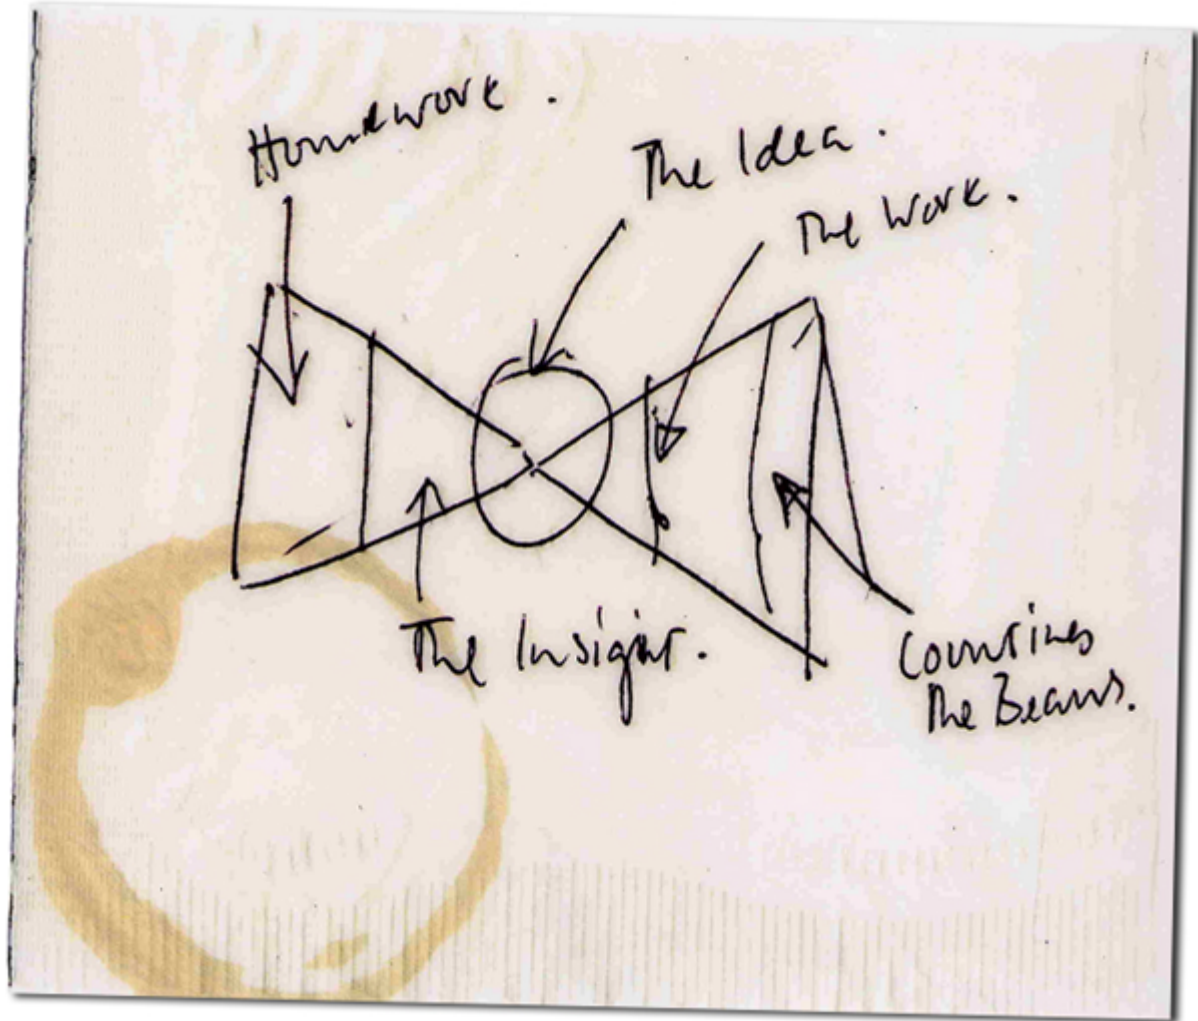 Homework.
The Idea.
The Work.
The Insight.
Counting
The Beans.